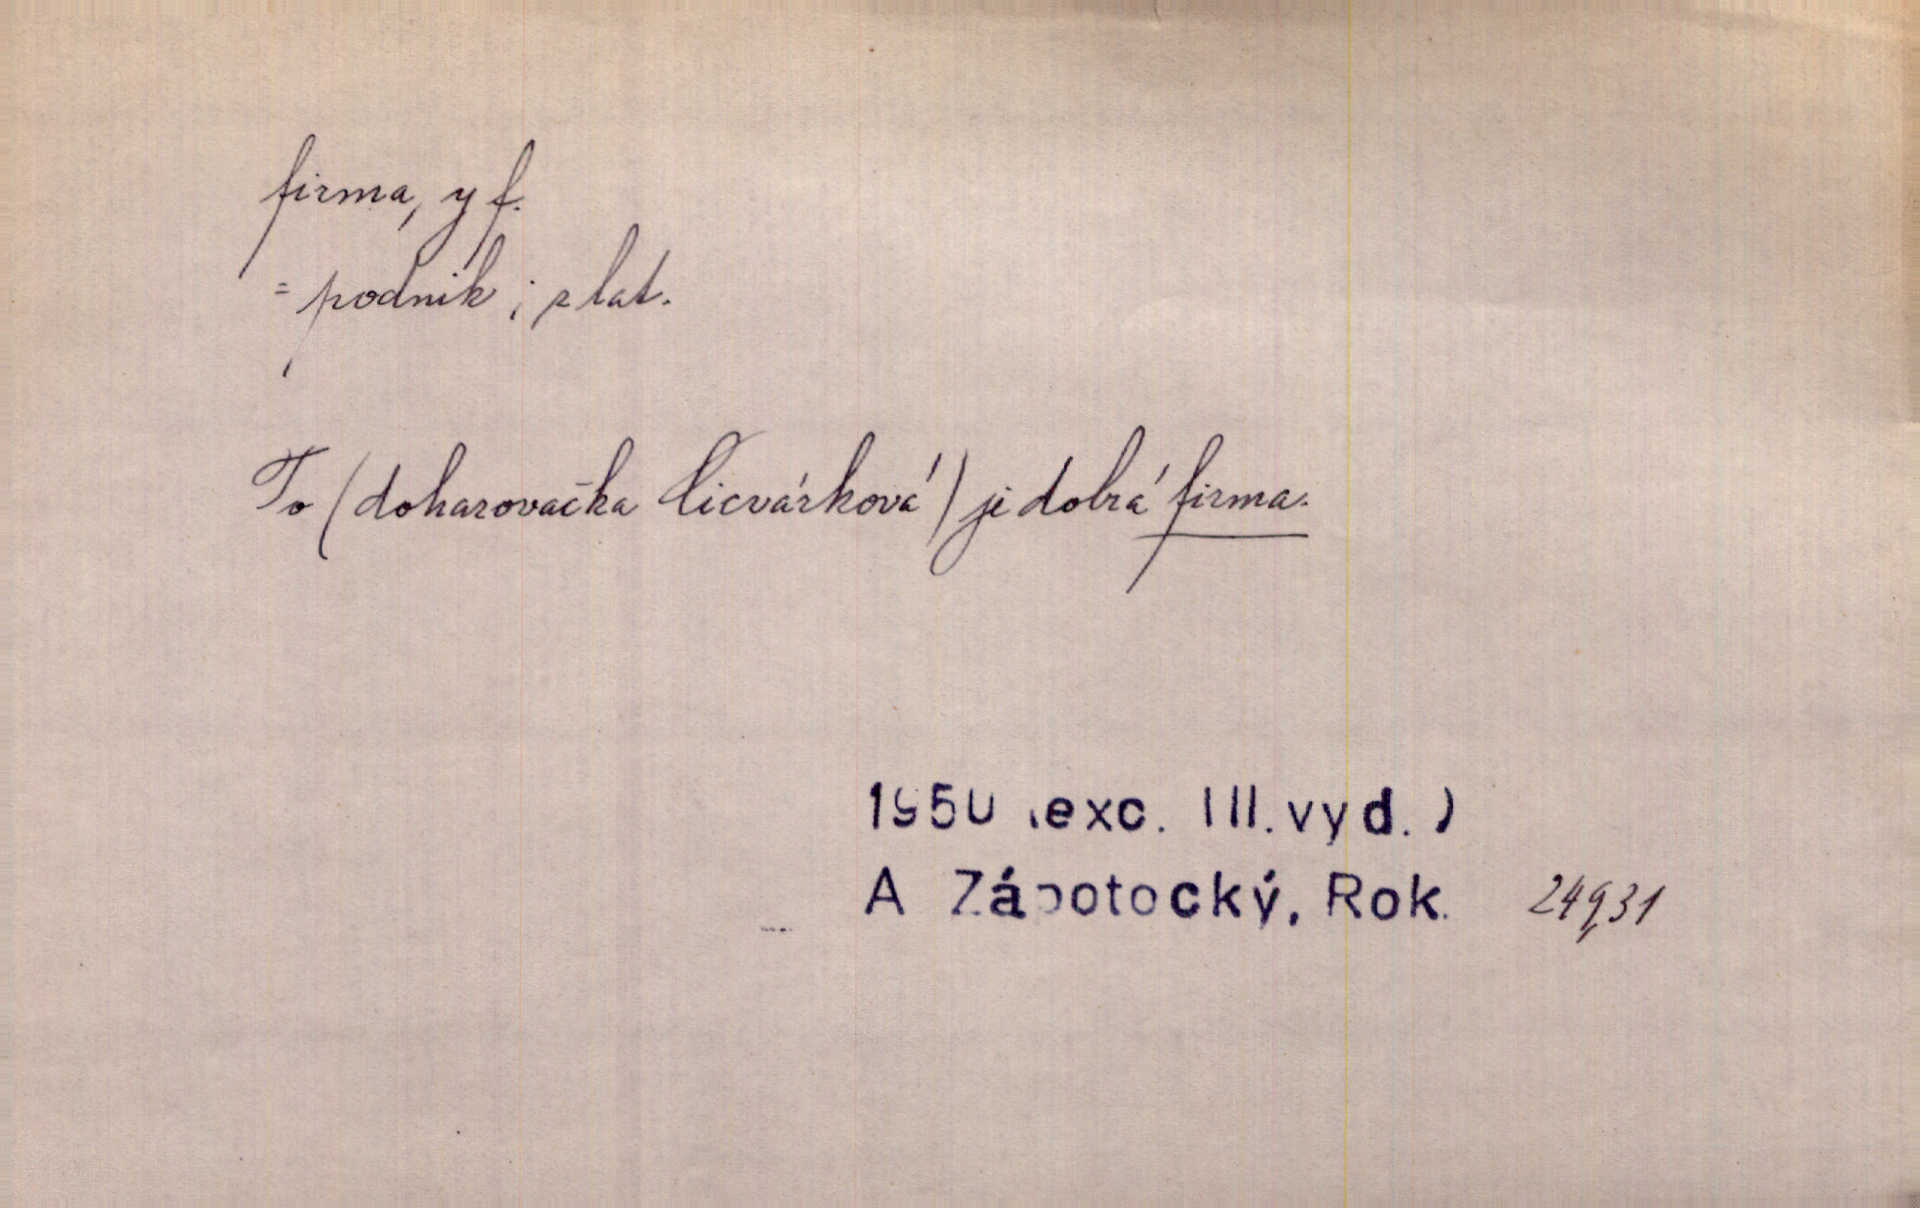 firma, y f.
= podnik ; z lat.
To (doharovačka Cicvárková) je dobrá firma.
1950 (exc. III. vyd.)
A Zápotocký, Rok. 24931